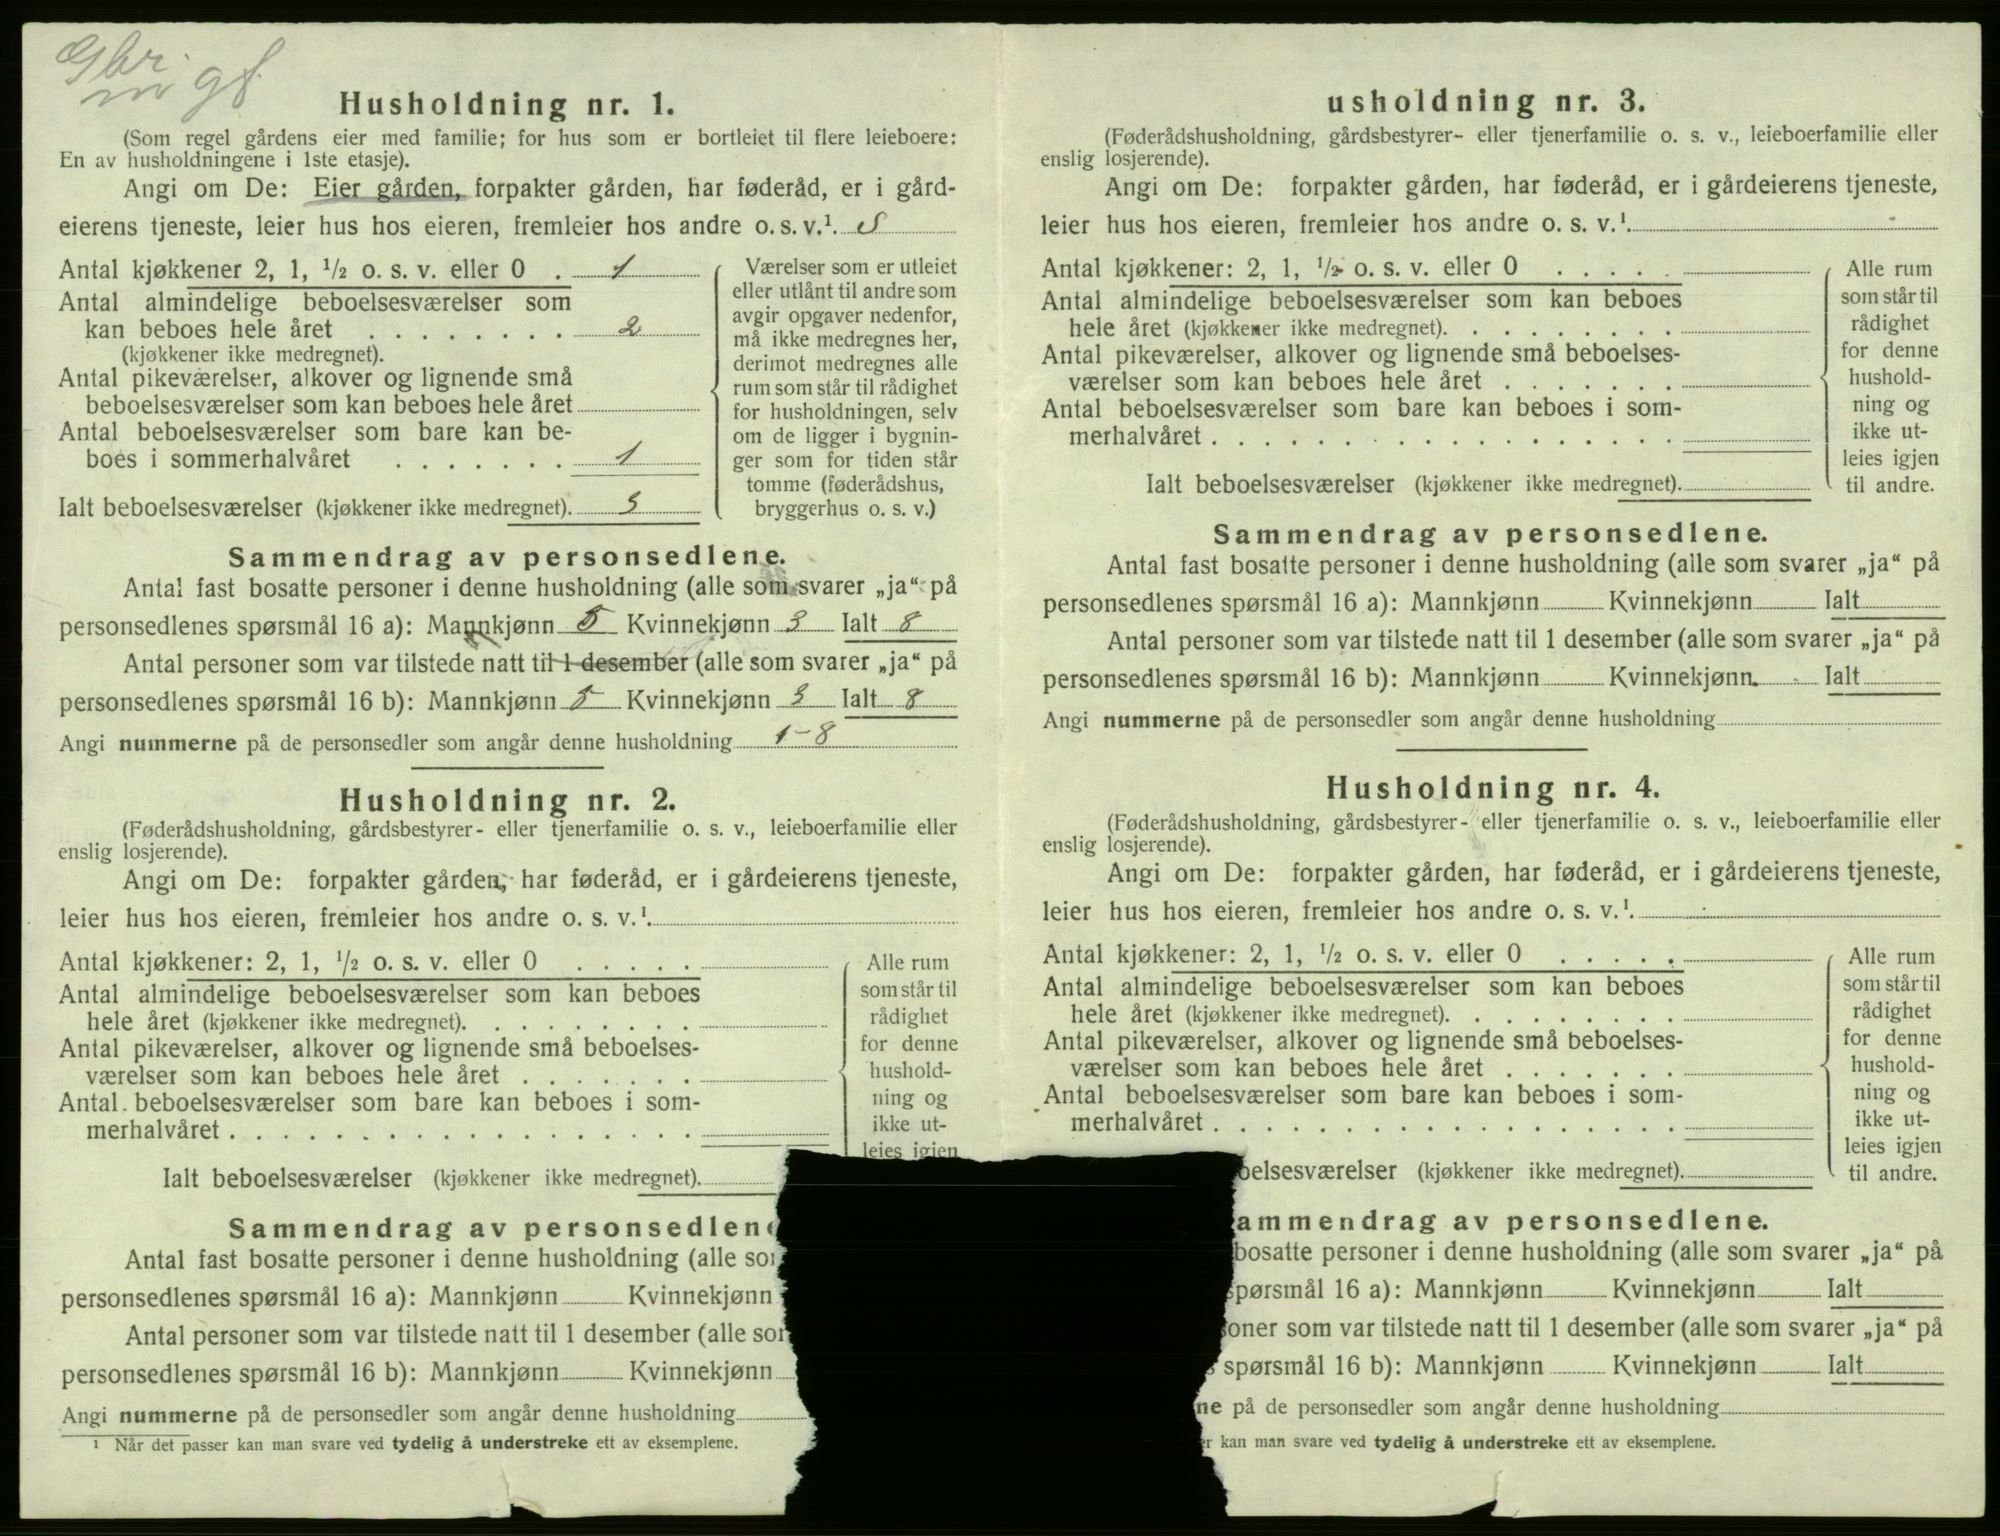 Gbr.
m gf.
Husholdning nr. 1.
(Som regel gårdens eier med familie; for hus som er bortleiet til flere leieboere:
En av husholdningene i 1ste etasje).
Angi om De: Eier gården, forpakter gården, har føderåd, er i gård-
eierens tjeneste, leier hus hos eieren, fremleier hos andre o. s. v.¹. S
Antal kjøkkener 2, 1, ½ o. s. v. eller 0 . 1
Antal almindelige beboelsesværelser som
kan beboes hele året . . . . . . . . 2
(kjøkkener ikke medregnet).
Antal pikeværelser, alkover og lignende små
beboelsesværelser som kan beboes hele året
Antal beboelsesværelser som bare kan be-
boes i sommerhalvåret . . . . . . . 1
Ialt beboelsesværelser (kjøkkener ikke medregnet). 3
Værelser som er utleiet
eller utlånt til andre som
avgir opgaver nedenfor,
må ikke medregnes her,
derimot medregnes alle
rum som står til rådighet
for husholdningen, selv
om de ligger i bygnin-
ger som for tiden står
tomme (føderådshus,
bryggerhus o. s. v.)
Sammendrag av personsedlene.
Antal fast bosatte personer i denne husholdning (alle som svarer „ja“ på
personsedlenes spørsmål 16 a): Mannkjønn 5 Kvinnekjønn 3 Ialt 8
Antal personer som var tilstede natt til 1 desember (alle som svarer „ja“ på
personsedlenes spørsmål 16 b): Mannkjønn 5 Kvinnekjønn 3 Ialt 8
Angi nummerne på de personsedler som angår denne husholdning 1-8
Husholdning nr. 2.
(Føderådshusholdning, gårdsbestyrer- eller tjenerfamilie o. s. v., leieboerfamilie eller
enslig losjerende).
Angi om De: forpakter gården, har føderåd, er i gårdeierens tjeneste,
leier hus hos eieren, fremleier hos andre o. s. v.¹.
Antal kjøkkener: 2, 1, ½ o. s. v. eller 0 . . . . .
Antal almindelige beboelsesværelser som kan beboes
hele året (kjøkkener ikke medregnet). . . . . . . . .
Antal pikeværelser, alkover og lignende små beboelses-
værelser som kan beboes hele året . . . . . . .
Antal beboelsesværelser som bare kan beboes i som-
merhalvåret . . . . . . . . . . . . . . . . . .
Ialt beboelsesværelser (kjøkkener ikke medregnet).
Alle rum
som står til
rådighet
for denne
hushold-
ning og
ikke ut-
leies igjen
Sammendrag av personsedlene
Antal fast bosatte personer i denne husholdning (alle som
personsedlenes spørsmål 16 a): Mannkjønn Kvinnekjønn
Antal personer som var tilstede natt til 1 desember (alle som
personsedlenes spørsmål 16 b): Mannkjønn Kvinnekjønn
Angi nummerne på de personsedler som angår denne husholdning
¹ Når det passer kan man svare ved tydelig å understreke ett av eksemplene.
usholdning nr. 3.
(Føderådshusholdning, gårdsbestyrer- eller tjenerfamilie o. s. v., leieboerfamilie eller
enslig losjerende).
Angi om De: forpakter gården, har føderåd, er i gårdeierens tjeneste,
leier hus hos eieren, fremleier hos andre o. s. v.¹.
Antal kjøkkener: 2, 1, ½ o. s. v. eller 0 . . . . .
Antal almindelige beboelsesværelser som kan beboes
hele året (kjøkkener ikke medregnet). . . . . . . . .
Antal pikeværelser, alkover og lignende små beboelses-
værelser som kan beboes hele året . . . . . . .
Antal beboelsesværelser som bare kan beboes i som-
merhalvåret . . . . . . . . . . . . . . . . . .
Ialt beboelsesværelser (kjøkkener ikke medregnet).
Alle rum
som står til
rådighet
for denne
hushold-
ning og
ikke ut-
leies igjen
til andre.
Sammendrag av personsedlene.
Antal fast bosatte personer i denne husholdning (alle som svarer „ja“ på
personsedlenes spørsmål 16 a): Mannkjønn Kvinnekjønn Ialt
Antal personer som var tilstede natt til 1 desember (alle som svarer „ja“ på
personsedlenes spørsmål 16 b): Mannkjønn Kvinnekjønn Ialt
Angi nummerne på de personsedler som angår denne husholdning
Husholdning nr. 4.
(Føderådshusholdning, gårdsbestyrer- eller tjenerfamilie o. s. v., leieboerfamilie eller
enslig losjerende).
Angi om De: forpakter gården, har føderåd, er i gårdeierens tjeneste,
leier hus hos eieren, fremleier hos andre o. s. v.¹.
Antal kjøkkener: 2, 1, ½ o. s. v. eller 0 . . . . .
Antal almindelige beboelsesværelser som kan beboes
hele året (kjøkkener ikke medregnet). . . . . . . . .
Antal pikeværelser, alkover og lignende små beboelses-
værelser som kan beboes hele året . . . . . . .
Antal beboelsesværelser som bare kan beboes i som-
merhalvåret . . . . . . . . . . . . . . . . . .
oelsesværelser (kjøkkener ikke medregnet).
Alle rum
som står til
rådighet
for denne
hushold-
ning og
ikke ut-
leies igjen
til andre.
ammendrag av personsedlene.
bosatte personer i denne husholdning (alle som svarer „ja“ på
spørsmål 16 a): Mannkjønn Kvinnekjønn Ialt
oner som var tilstede natt til 1 desember (alle som svarer „ja“ på
s spørsmål 16 b): Mannkjønn Kvinnekjønn Ialt
ne på de personsedler som angår denne husholdning
r kan man svare ved tydelig å understreke ett av eksemplene.